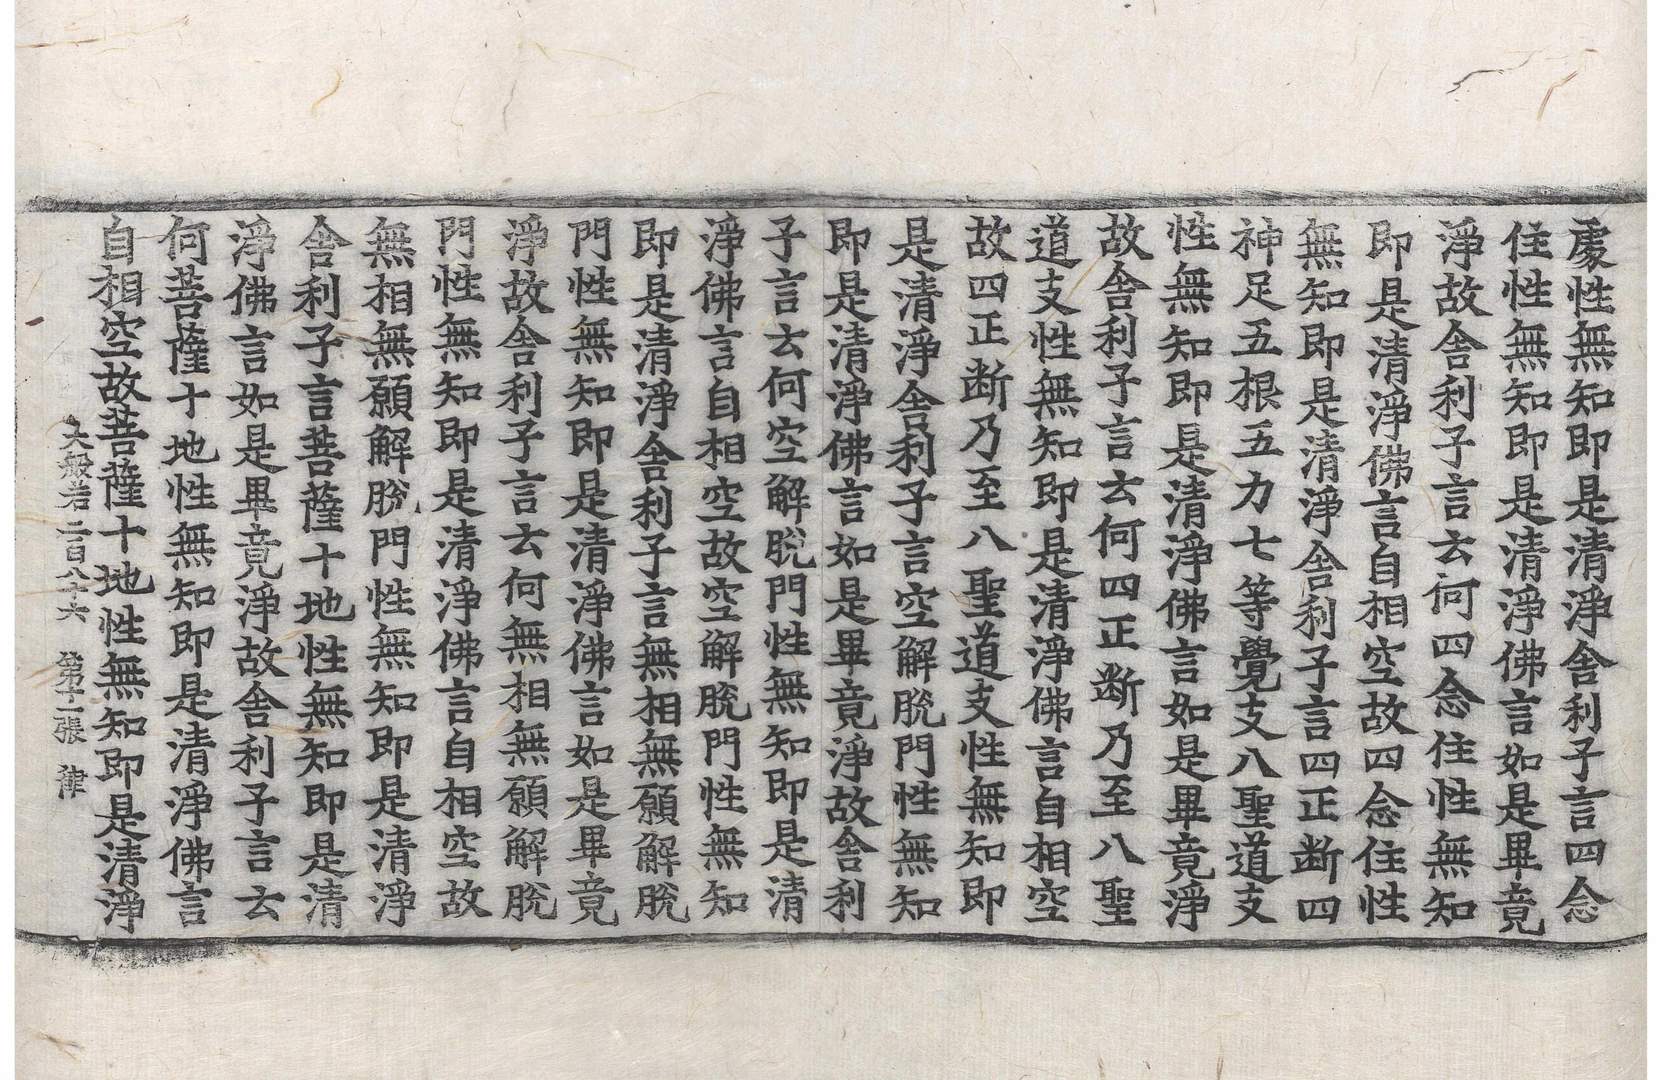 處性無知即是清淨舍利子言四念
住性無知即是清淨佛言如是畢竟
淨故舍利子言云何四念住性無知
即是清淨佛言自相空故四念住性
無知即是清淨舍利子言四正断四
神足五根五力七等覺支八聖道支
性無知即是清淨佛言如是畢竟淨
故舍利子言云何四正断乃至八聖
道支性無知即是清淨佛言自相空
故四正断乃至八聖道支性無知即
是清淨舍利子言空解脫門性無知
即是清淨佛言如是畢竟淨故舍利
子言云何空解脫門性無知即是清
淨佛言自相空故空解脫門性無知
即是清淨舍利子言無相無願解脫
門性無知即是清淨佛言如是畢竟
淨故舍利子言云何無相無願解脫
門性無知即是清淨佛言自相空故
無相無願解脫門性無知即是清淨
舍利子言菩薩十地性無知即是清
淨佛言如是畢竟淨故舍利子言云
何菩薩十地性無知即是清淨佛言
自相空故菩薩十地性無知即是清淨
大般若二百八十六 第十二張 律